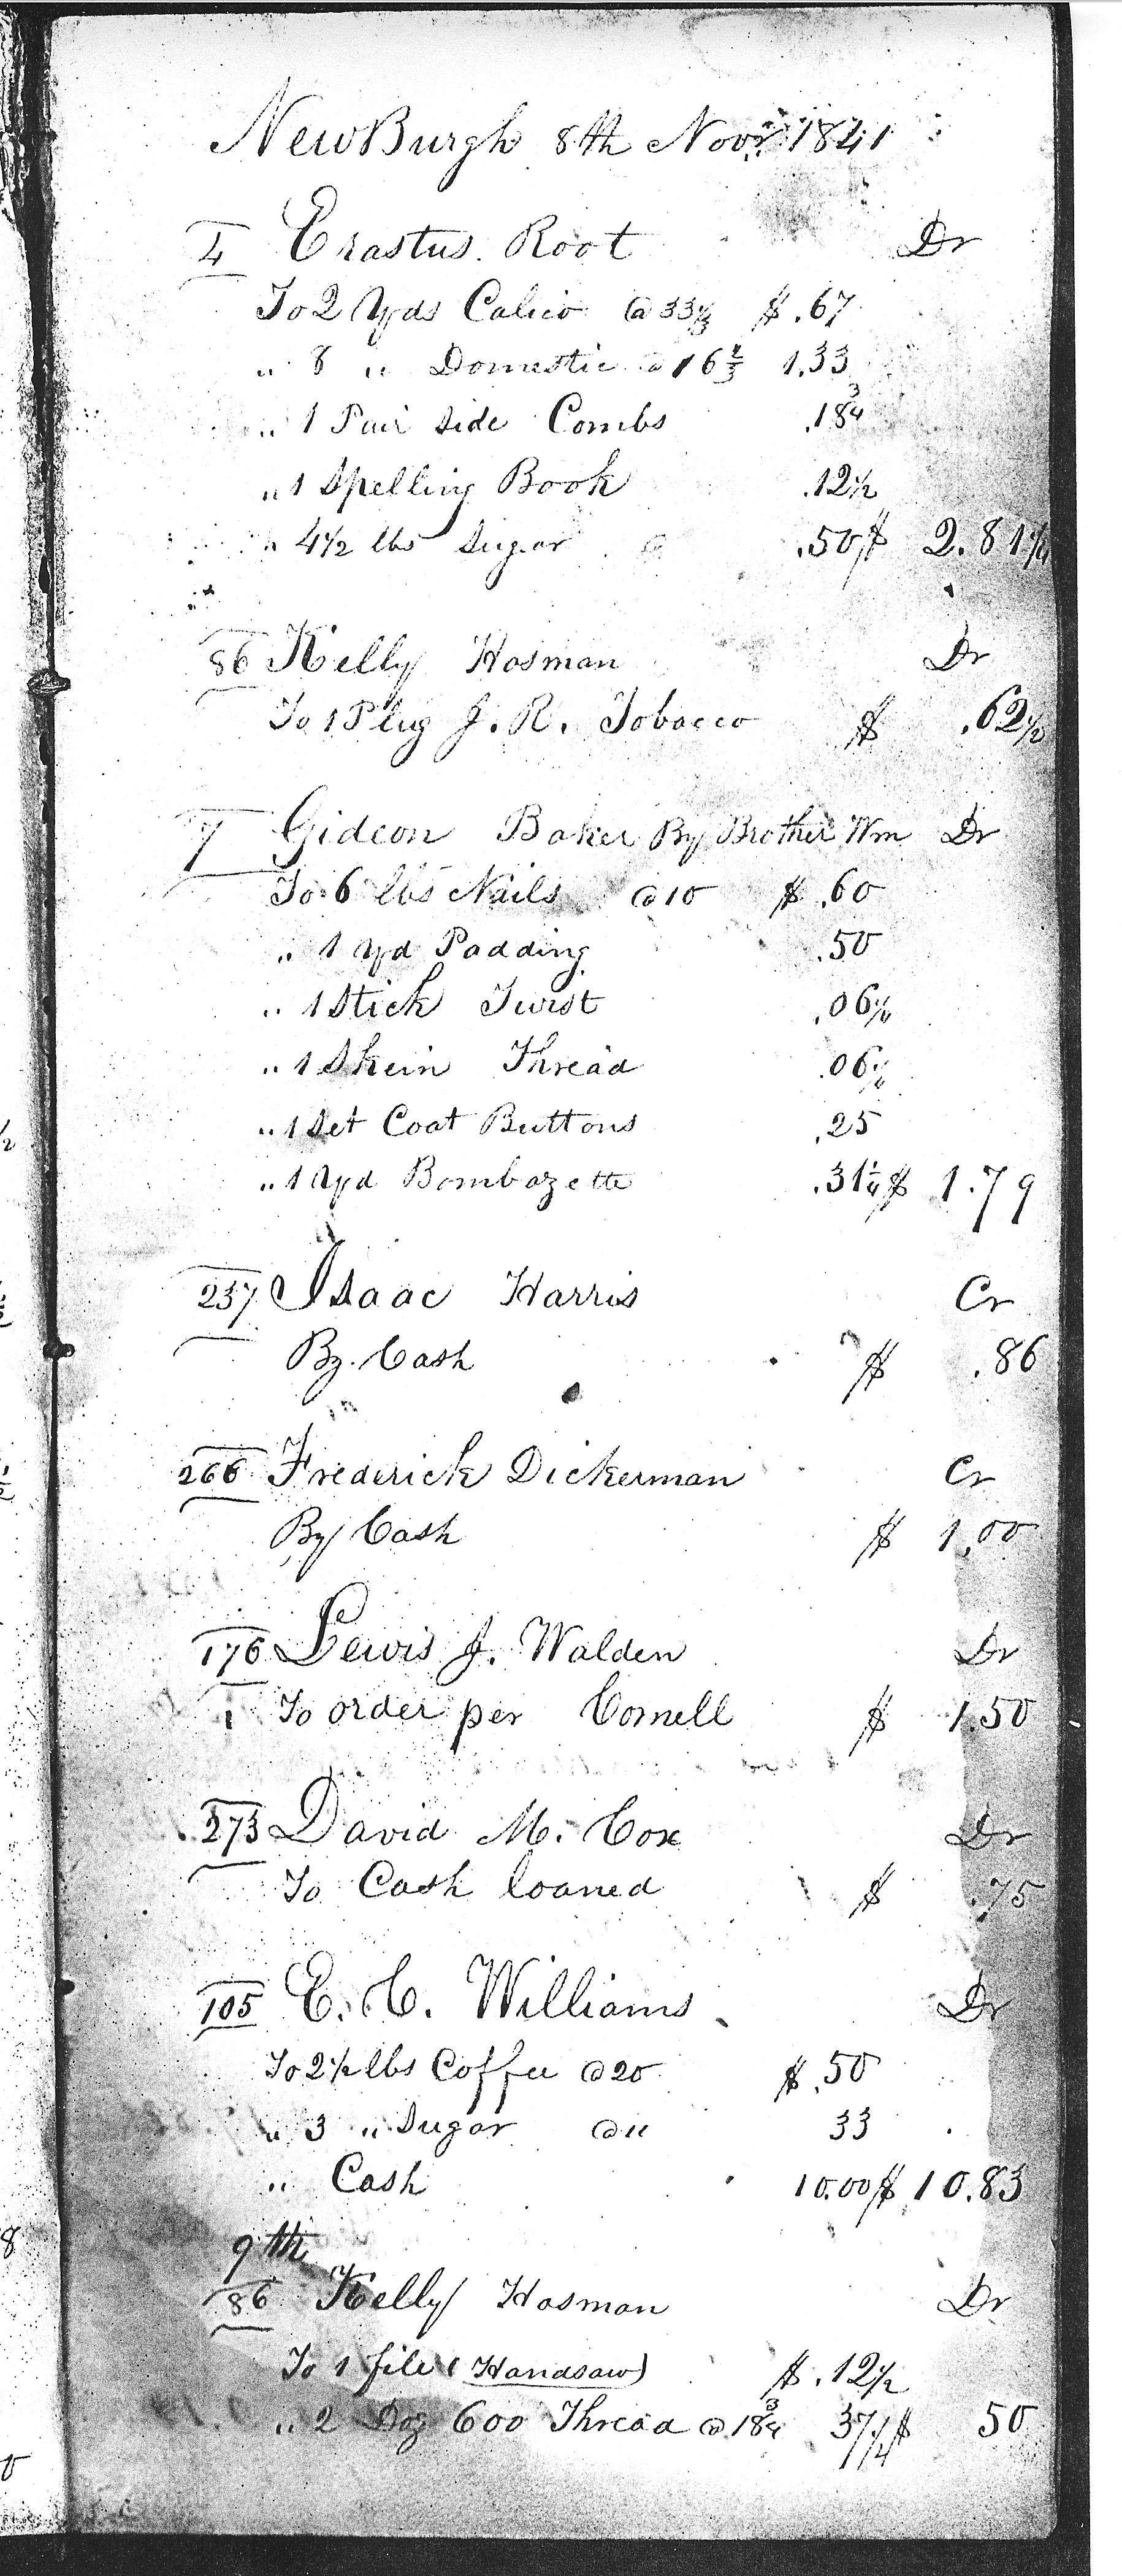 NewBurgh 8th Novr 1841
4 Erastus Root Dr
To 2 Yds Calico @ 33⅓ $ .67
" 8 " Domestic @ 16⅔ 1.33
" 1 Pair Side Combs .18¾
" 1 Spelling Book .12½
" 4½ lbs Sugar @ .50 $ 2.81¼
86 Kelly Hosman Dr
To 1 Plug J. R. Tobacco $ .62½
7 Gideon Baker By Brother Wm Dr
To 6 lbs Nails @ 10 $ .60
" 1 Yd Padding .50
" 1 Stick Twist .06¼
" 1 Skein Thread .06¼
" 1 Set Coat Buttons .25
" 1 Yd Bombazette .31¼ $ 1.79
237 Isaac Harris Cr
By Cash $ .86
266 Frederick Dickerman Cr
By Cash $ 1.00
176 Lewis J. Walden Dr
1 To order per Cornell $ 1.50
273 David M. Cox Dr
To Cash loaned $ .75
105 E. C. Williams Dr
To 2½ lbs Coffee @ 20 $ .50
" 3 " Sugar @ 11 33
" Cash 10.00 $ 10.83
9th
86 Kelly Hosman Dr
To 1 file (Handsaw) $ .12½
" 2 Doz 600 Thread @ 18¾ 37½ $ 50